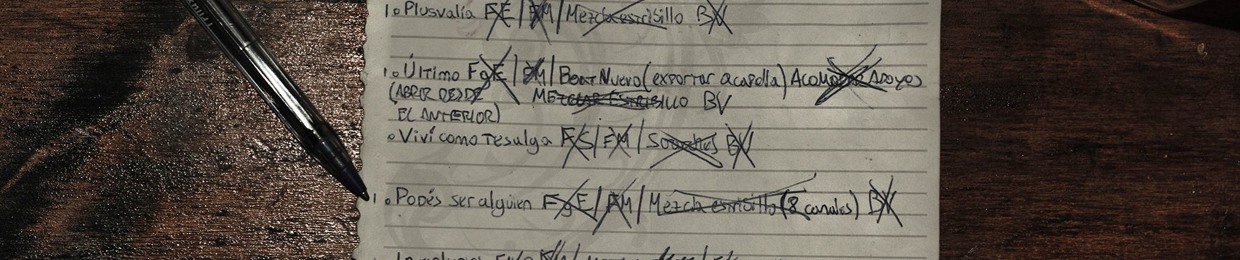 1. Plusvalía FE / FM / Mezcla estribillo BV
1. Último FgE / FM / Beat Nuevo (exportar acapella) Acomodar Apoyos
(ABRIR DESDE MEZCLAR ESTRIBILLO BV
EL ANTERIOR)
. Viví como te salga FS / FM / BV
1. Podés ser alguien FgE / FM / Mezcla estribillo (8 canales) BV